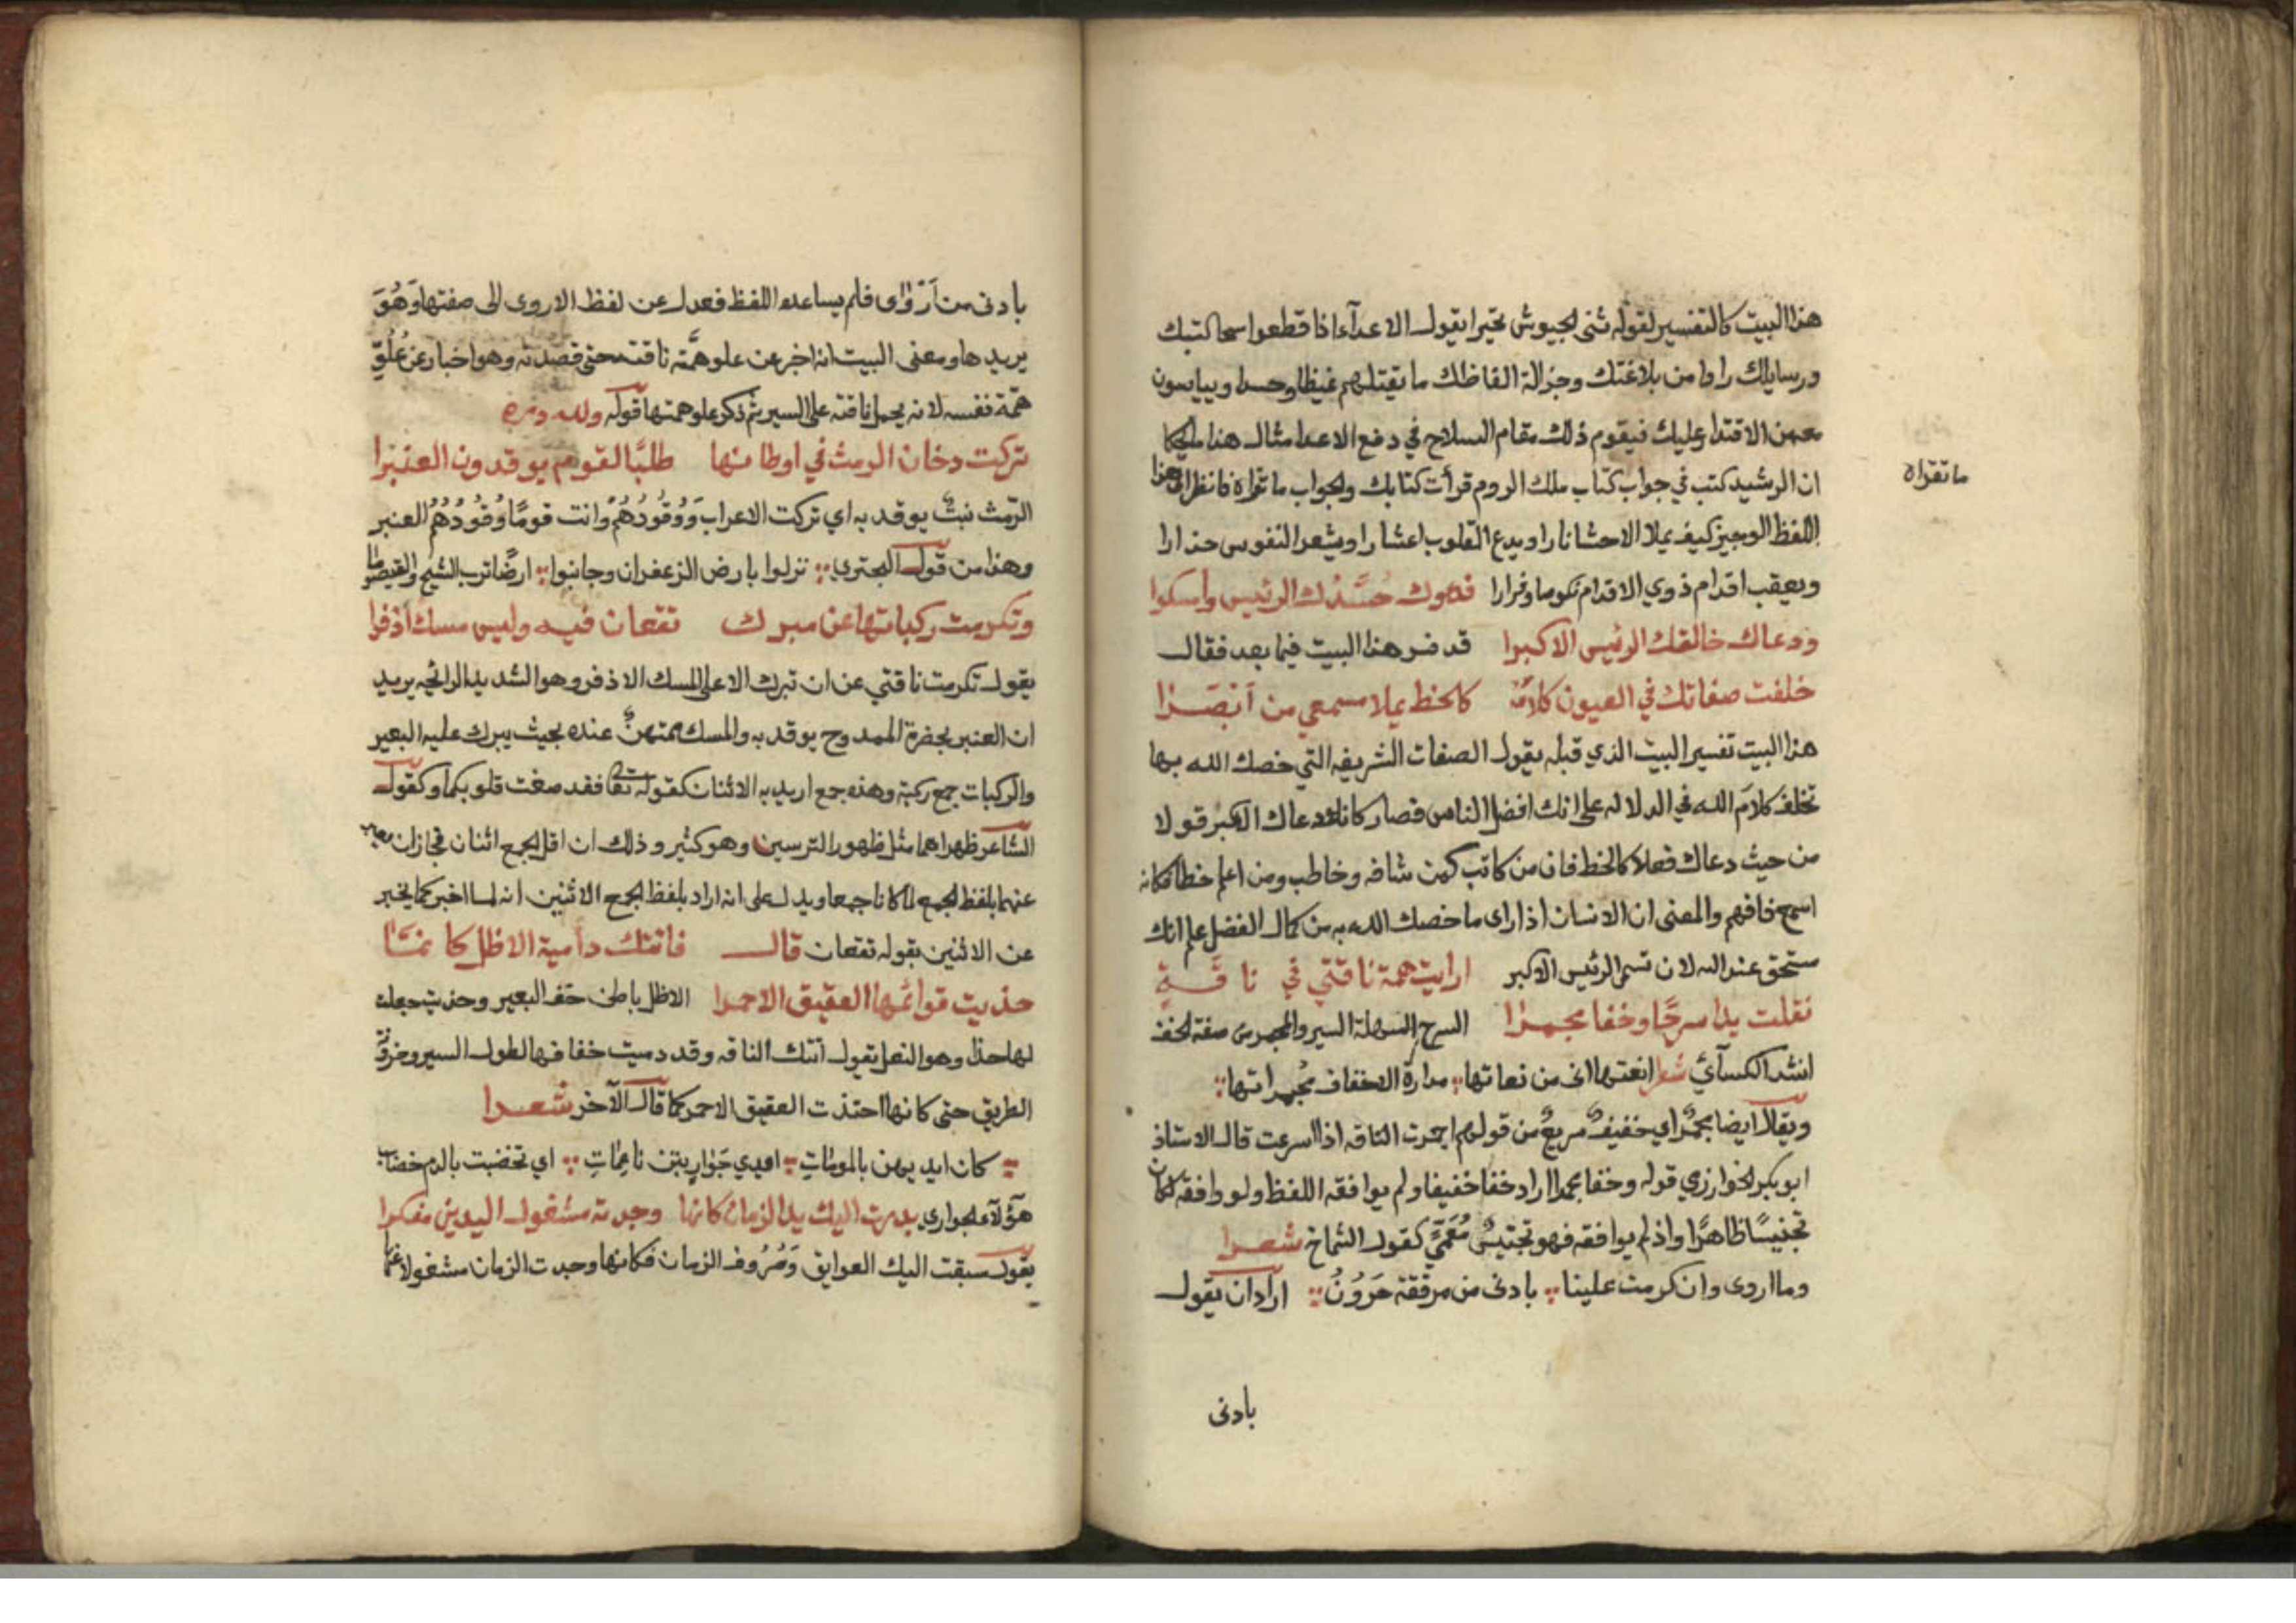 هذا البيت كالتفسير لقوله ثنى الجيوش تحيرا يقول الاعدآء اذا قطعوا سحا كتبك
ورسايلك راوا من بلاغتك وجزالة الفاظك ما يقتلهم غيظا وحسدا وييايسون
معهن الاقتدار عليك فيقوم ذلك مقام السلاح في دفع الاعدا مثال هذا ما يحكا
ان الرشيد كتب في جواب كتاب ملك الروم قرأت كتابك والجواب ما تراه فانظر الى هذا
ما تقراه
اللفظ الوجيز كيف يملا الاحشا نارا ويدع القلوب اعشارا ويشعر النفوس حذارا
ويعقب اقدام ذوي الاقدام نكوصا وفرارا فدعوك حُسَّدُك الرئيس وامسكوا
ودعاك خالقك الرئيس الاكبرا قد فسر هذا البيت فيما بعد فقال
خلفت صفاتك في العيون كلامه كالخط يملا مسمعي من ابصرا
هذا البيت تفسير البيت الذي قبله يقول الصفات الشريفه التي خصك الله بها
تخلف كلام الله في الدلاله على انك افضل الناس فصار كانه دعاك الاكبر قولا
من حيث دعاك فعلا كالخط فان من كاتب كمن شافه وخاطب ومن اعلم خطا فكانه
اسمع فافهم والمعنى ان الانسان اذا راى ما خصك الله به من كمال الفضل علم انك
مستحق عند الله لان تسمى الرئيس الاكبر ارايت همة ناقتي في ناقةٍ
نقلت يدا سرحًا وخفا مجمرا السرح السهلة السير والمجمر من صفة الخف
انشد الكسآئي شعر انعتها اني من نعاتها مدارة الاخفاف مُجمراتها
ويقال ايضا مجمر اي خفيف سريع من قولهم اجمرت الناقه اذا اسرعت قال الاستاذ
ابو بكر الخوارزمي قوله وخفا مجمرا اراد خفا خفيفا ولم يوافقه اللفظ ولو وافقه لكان
تجنيسًا ظاهرًا واذ لم يوافقه فهو تجنيس مُعَمًّى كقول الشماخ شعرا
وما اروى وان كرمت علينا بادنى من موقفة حَرُونُ اراد ان يقول
بادنى
بادنى من اَرْوٰى فلم يساعده اللفظ فعدل عن لفظ الاروى الى صفتها وَهُوَ
يريدها ومعنى البيت انه اخبر عن علو همَّة ناقته حتى قصدته وهو اخبار عن عُلُوِّ
همّة نفسه لانه يحمل ناقته على السير ثم ذكر علو همتها قوله ولله دره
تركت دخان الرمث في اوطانها طلبًا لقوم يوقدون العنبرا
الرّمث نبتٌ يوقد به اي تركت الاعراب وَوُقُودُهُمْ وانت قومًا وُقُودُهُمُ العنبر
وهذا من قول البحتري نزلوا بارض الزعفران وجانبوا ارضًا ترب الشيح والقيصوما
وتكرمت ركباتها عن مبرك تقعان فيه وليس مسك اذفرا
يقول تكرمت ناقتي عن ان تبرك الا على المسك الاذفر وهو الشديد الرائحه يريد
ان العنبر بحضرة الممدوح يوقد به والمسك ممتهنٌ عنده بحيث يبرك عليه البعير
والركبات جمع ركبة وهذه جمع اريد به الاثنان كقوله تعا فقد صغت قلوبكما وكقول
الشاعر ظهراهما مثل ظهور الترسين وهو كثير وذلك ان اقل الجمع اثنان فجاز ان يعبر
عنهما بلفظ الجمع لما كانا جمعا ويدل على انه اراد بلفظ الجمع الاثنين انه لما اخبر كما يخبر
عن الاثنين بقوله تقعان قال فاتتك دامية الاظل كانما
حذيت قوائمها العقيق الاحمرا الاظل باطن خف البعير وحذيت جعلت
لها حذا وهو النعل يقول اتتك الناقه وقد دميت خفافها لطول السير وحزونة
الطريق حتى كانها احتذت العقيق الاحمر كما قال الآخر شعرا
كان ايديهن بالموماتِ ايدي جَوَارٍ بتن ناعِمَاتِ اي تخضبت بالدم خضاب
هؤلآء الجواري بدرت اليك يد الزمان كانها وجدته مشغول اليدين مفكرا
يقول سبقت اليك العوايق وَصُرُوف الزمان فكانها وجدت الزمان مشغولا عنها